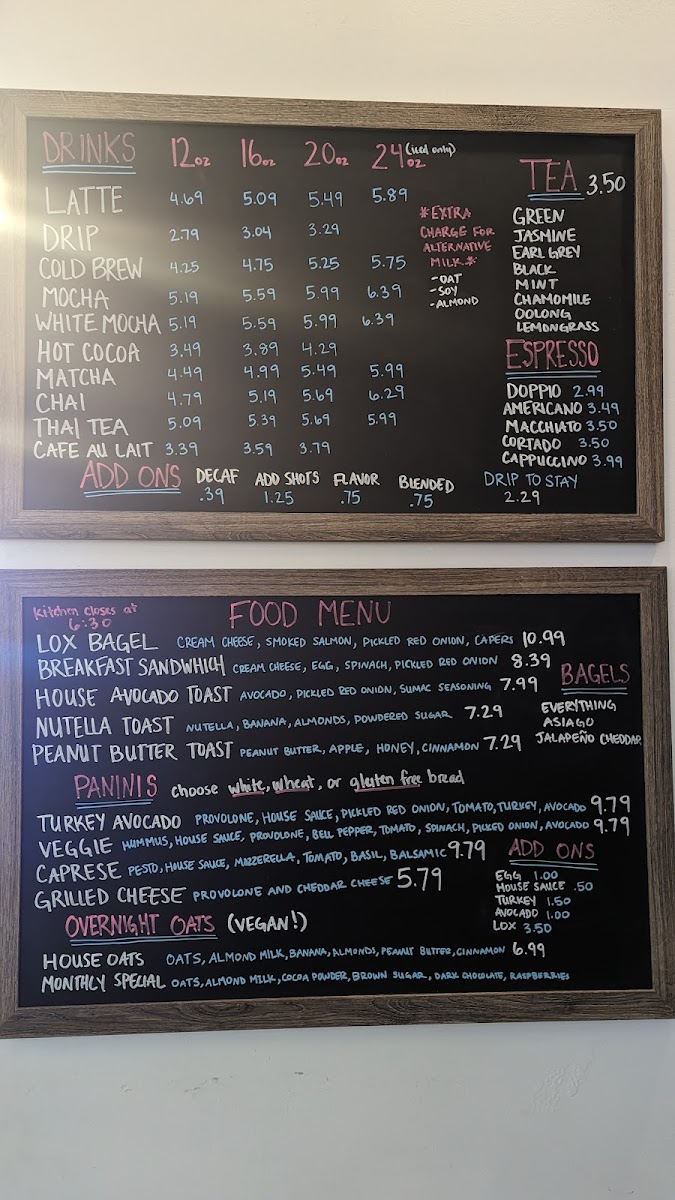 DRINKS 12oz 16oz 20oz 24oz (iced only)
LATTE 4.69 5.09 5.49 5.89
DRIP 2.79 3.04 3.29
COLD BREW 4.25 4.75 5.25 5.75
MOCHA 5.19 5.59 5.99 6.39
WHITE MOCHA 5.19 5.59 5.99 6.39
HOT COCOA 3.49 3.89 4.29
MATCHA 4.49 4.99 5.49 5.99
CHAI 4.79 5.19 5.69 6.29
THAI TEA 5.09 5.39 5.69 5.99
CAFE AU LAIT 3.39 3.59 3.79
*EXTRA
CHARGE FOR
ALTERNATIVE
MILK*
-OAT
-SOY
-ALMOND
TEA 3.50
GREEN
JASMINE
EARL GREY
BLACK
MINT
CHAMOMILE
OOLONG
LEMONGRASS
ESPRESSO
DOPPIO 2.99
AMERICANO 3.49
MACCHIATO 3.50
CORTADO 3.50
CAPPUCCINO 3.99
DRIP TO STAY
2.29
ADD ONS DECAF ADD SHOTS FLAVOR BLENDED
.39 1.25 .75 .75
Kitchen closes at
6:30
FOOD MENU
LOX BAGEL CREAM CHEESE, SMOKED SALMON, PICKLED RED ONION, CAPERS 10.99
BREAKFAST SANDWHICH CREAM CHEESE, EGG, SPINACH, PICKLED RED ONION 8.39
HOUSE AVOCADO TOAST AVOCADO, PICKLED RED ONION, SUMAC SEASONING 7.99
NUTELLA TOAST NUTELLA, BANANA, ALMONDS, POWDERED SUGAR 7.29
PEANUT BUTTER TOAST PEANUT BUTTER, APPLE, HONEY, CINNAMON 7.29
BAGELS
EVERYTHING
ASIAGO
JALAPEÑO CHEDDAR
PANINIS choose white, wheat, or gluten free bread
TURKEY AVOCADO PROVOLONE, HOUSE SAUCE, PICKLED RED ONION, TOMATO, TURKEY, AVOCADO 9.79
VEGGIE HUMMUS, HOUSE SAUCE, PROVOLONE, BELL PEPPER, TOMATO, SPINACH, PICKED ONION, AVOCADO 9.79
CAPRESE PESTO, HOUSE SAUCE, MOZZERELLA, TOMATO, BASIL, BALSAMIC 9.79
GRILLED CHEESE PROVOLONE AND CHEDDAR CHEESE 5.79
ADD ONS
EGG 1.00
HOUSE SAUCE .50
TURKEY 1.50
AVOCADO 1.00
LOX 3.50
OVERNIGHT OATS (VEGAN!)
HOUSE OATS OATS, ALMOND MILK, BANANA, ALMONDS, PEANUT BUTTER, CINNAMON 6.99
MONTHLY SPECIAL OATS, ALMOND MILK, COCOA POWDER, BROWN SUGAR, DARK CHOCOLATE, RASPBERRIES